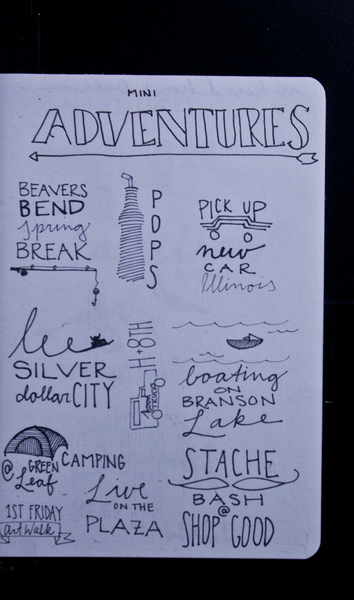 MINI
ADVENTURES
BEAVERS
BEND
Spring
BREAK
POPS
PICK UP
new
CAR
Illinois
SILVER
dollar CITY
H+8TH
boating
ON
BRANSON
Lake
CAMPING
@ GREEN
Leaf
Live
ON THE
PLAZA
STACHE
BASH
@
SHOP GOOD
1ST FRIDAY
art walk